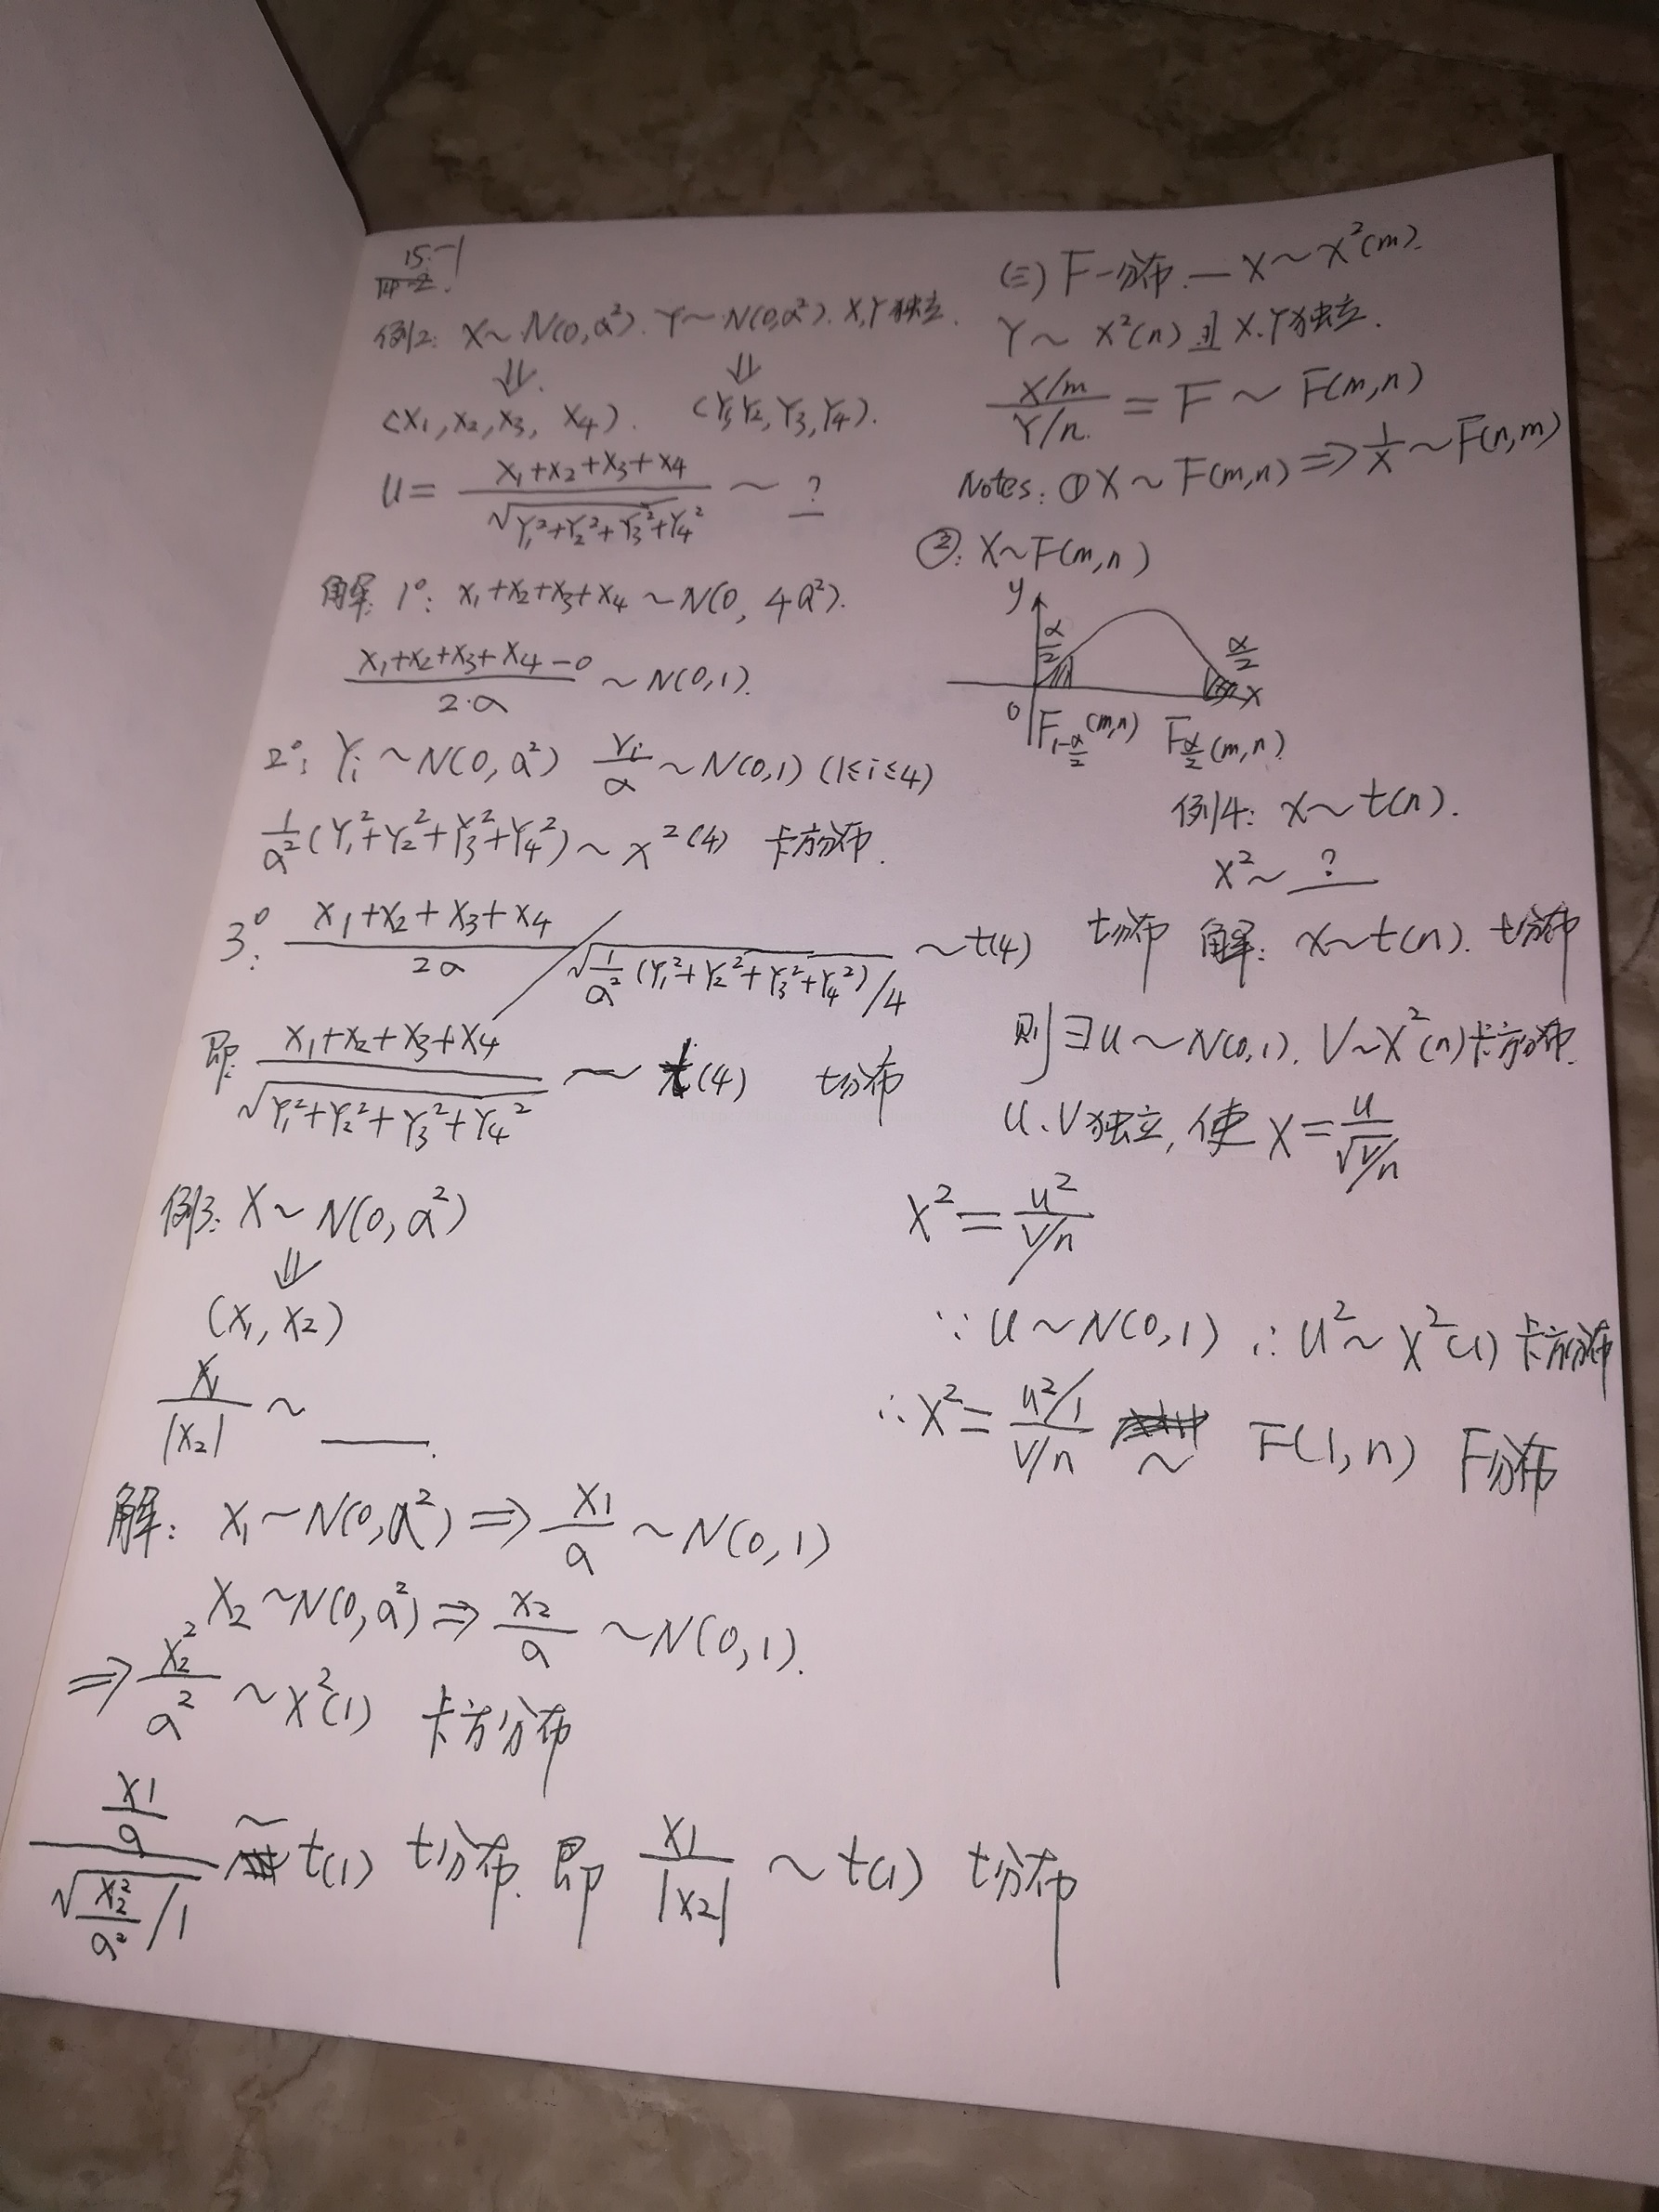 15-1
例2: X~N(0,a²). Y~N(0,a²). X,Y独立.
⇓ ⇓
(X₁,X₂,X₃, X₄). (Y₁Y₂,Y₃,Y₄).
U= (X₁+X₂+X₃+X₄)/√(Y₁²+Y₂²+Y₃²+Y₄²) ~ ?
解: 1°: X₁+X₂+X₃+X₄~N(0, 4a²).
(X₁+X₂+X₃+X₄-0)/(2·a) ~N(0,1).
2°: Yᵢ~N(0,a²) Yᵢ/a ~N(0,1) (1≤i≤4)
1/a²(Y₁²+Y₂²+Y₃²+Y₄²)~x²(4) 卡方分布.
3°: (X₁+X₂+X₃+X₄)/2a / √(1/a²(Y₁²+Y₂²+Y₃²+Y₄²)/4) ~t(4) t分布
即: (X₁+X₂+X₃+X₄)/√(Y₁²+Y₂²+Y₃²+Y₄²) ~ t(4) t分布
例3: X~N(0,a²)
⇓
(X₁,X₂)
X₁/|X₂| ~ ____.
解: X₁~N(0,a²)⇒X₁/a ~N(0,1)
X₂~N(0,a²)⇒X₂/a ~N(0,1).
⇒X₂²/a² ~x²(1) 卡方分布
(X₁/a)/√(X₂²/a² /1) ~ t(1) t分布. 即 X₁/|X₂| ~t(1) t分布
(三) F-分布.—X~x²(m).
Y~x²(n)且X.Y独立.
(X/m)/(Y/n) = F ~ F(m,n)
Notes: ①X~F(m,n)⇒1/X ~F(n,m)
②: X~F(m,n)
y
α/2 α/2
x
0 F₁₋α/₂(m,n) Fα/₂(m,n)
例4: X~t(n).
X²~ ?
解: X~t(n). t分布
则∃U~N(0,1). V~x²(n)卡方分布.
U.V独立, 使X=U/√(V/n)
X²=U²/(V/n)
∵U~N(0,1) ∴U²~x²(1)卡方分布
∴X²=(U²/1)/(V/n) ~ F(1,n) F分布